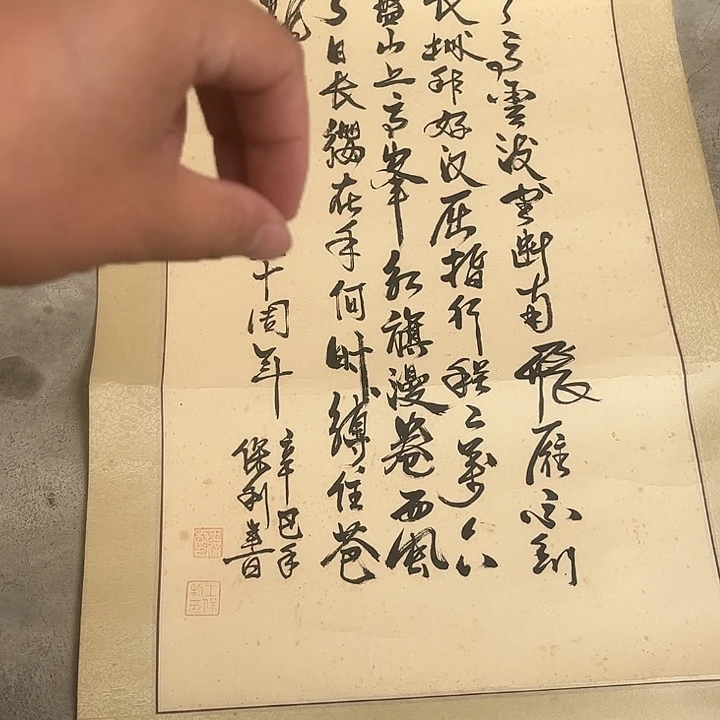 高雲淡望断南飛雁不到
长城非好汉屈指行程二萬六
盤山上高峯红旗漫卷西風
今日长缨在手何时缚住苍
十周年
辛巳年
保利書